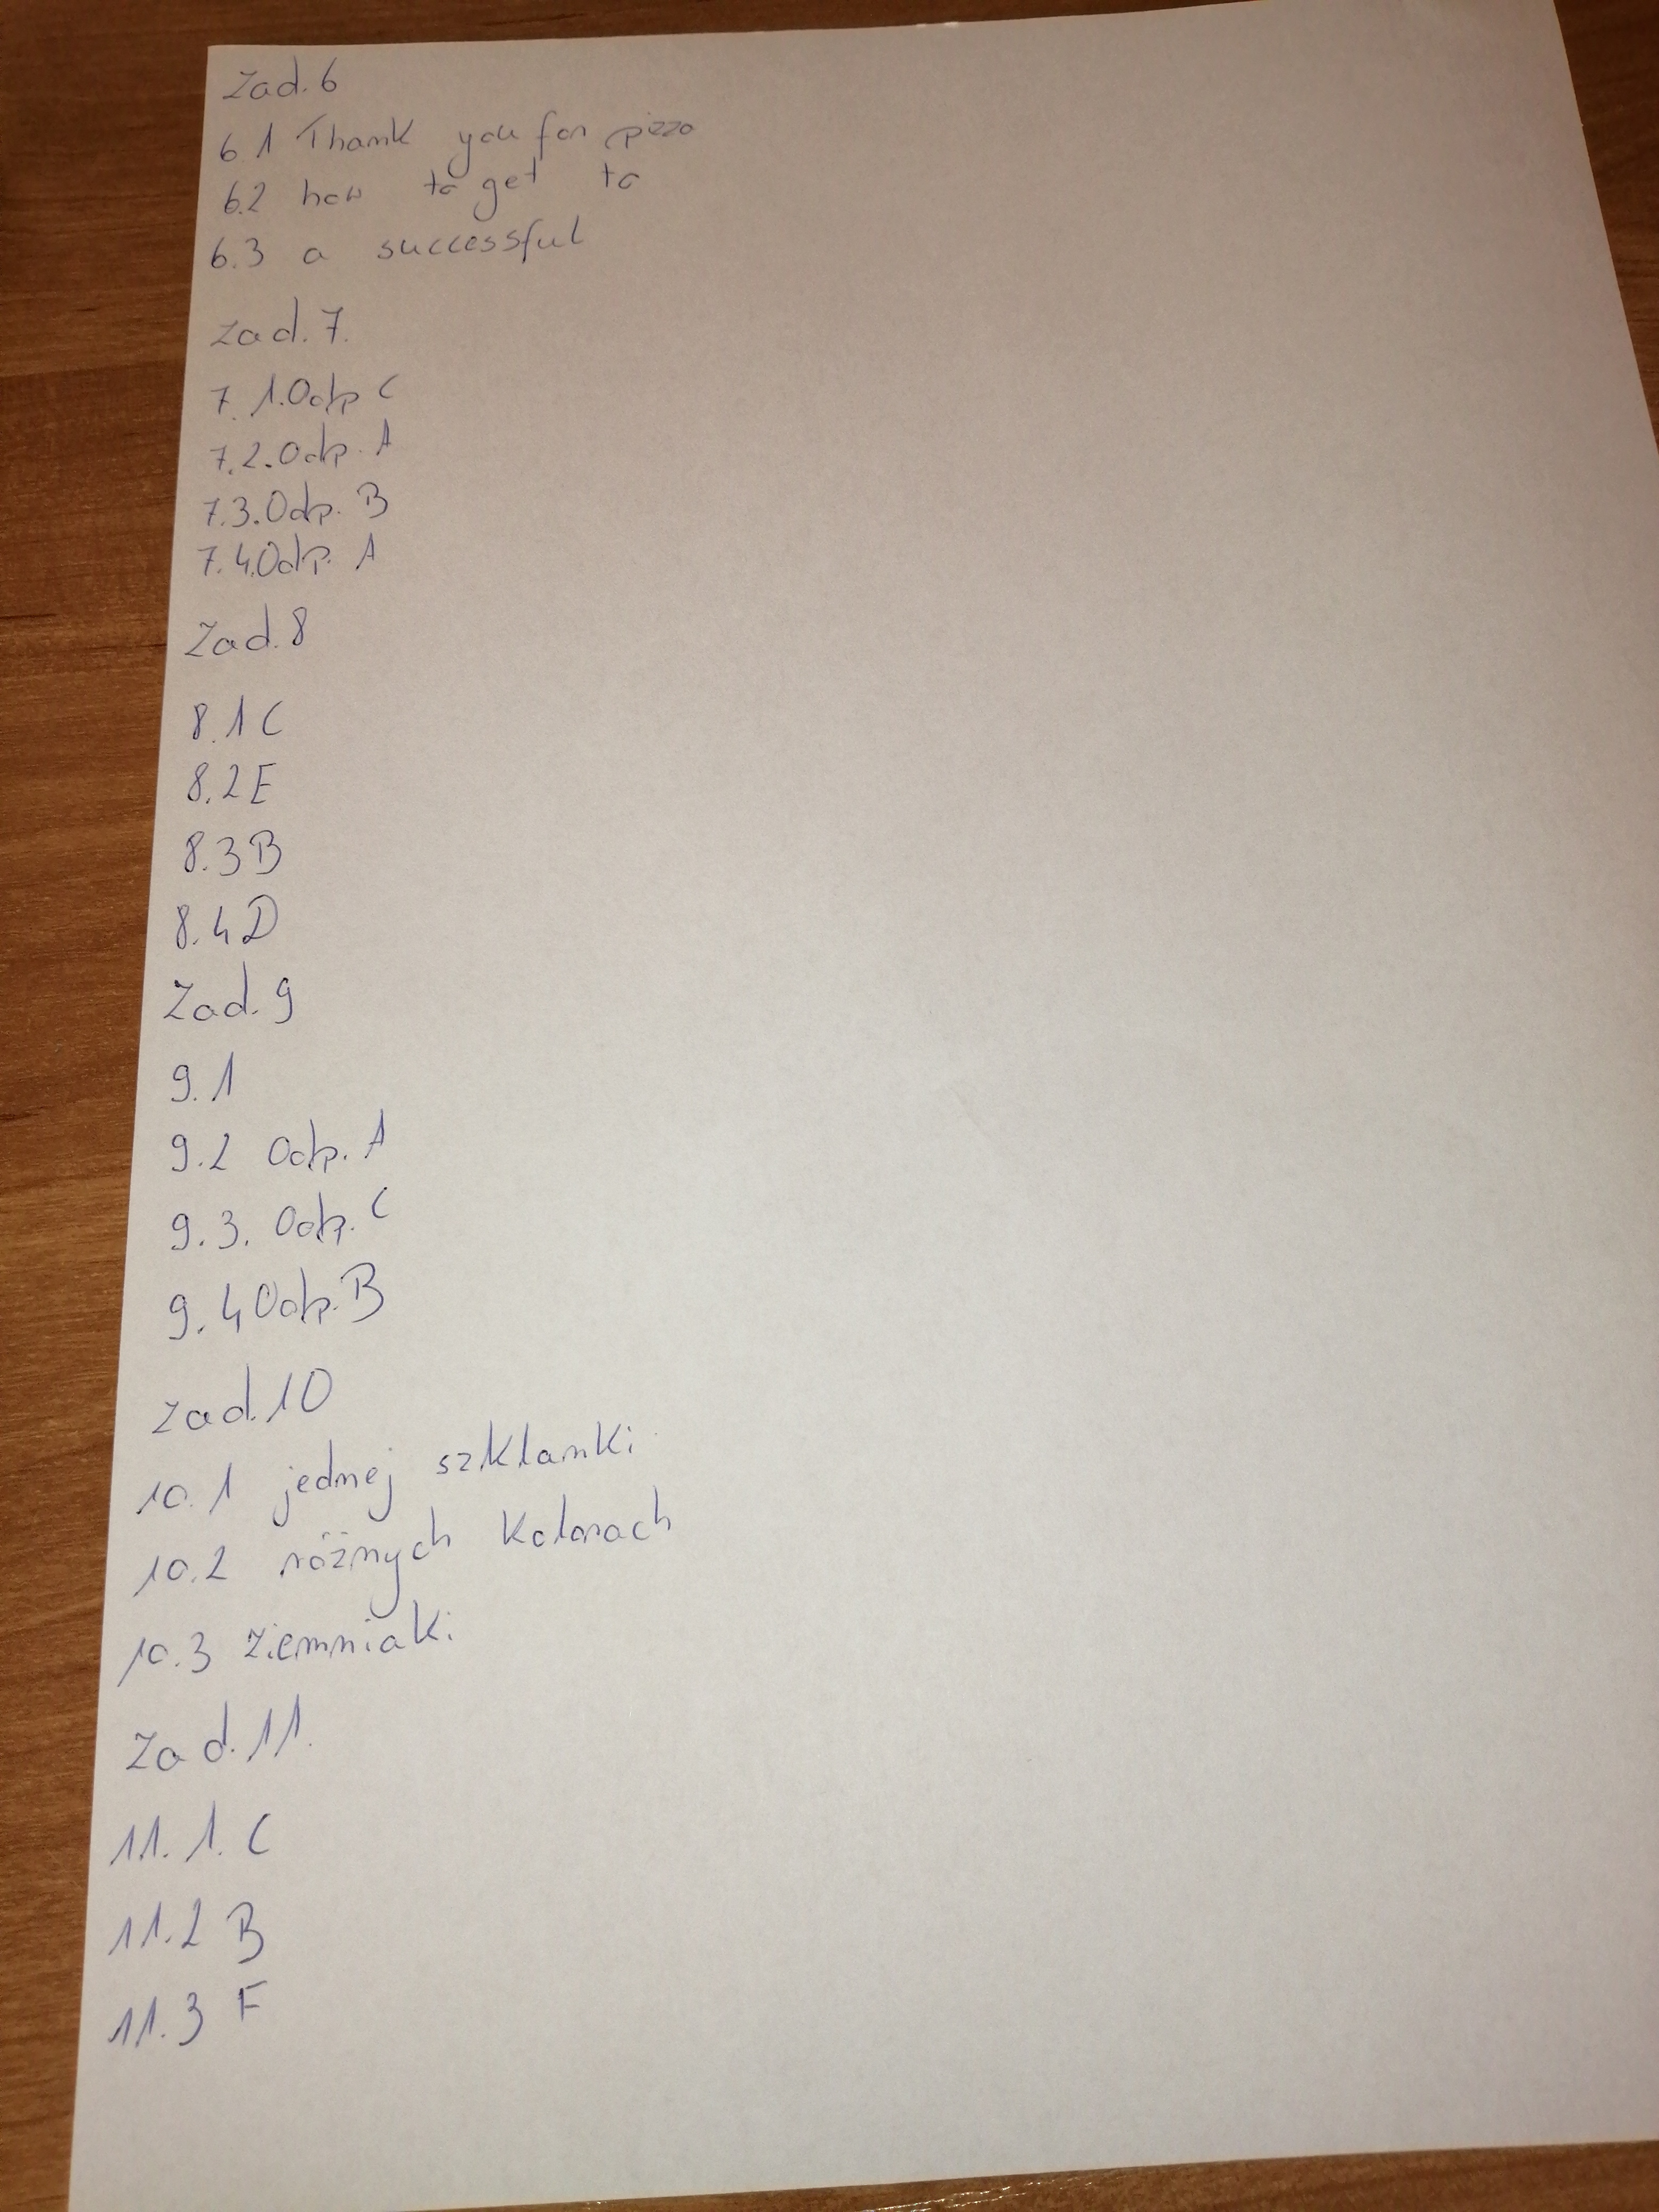 Zad. 6
6 1 Thank you for pizza
6.2 how to get to
6.3 a successful
Zad. 7.
7. 1. Odp C
7.2. Odp. A
7.3. Odp. B
7.4 Odp. A
Zad. 8
8.1 C
8.2 E
8.3 B
8.4 D
Zad. 9
9.1
9.2 Odp. A
9.3. Odp. C
9.4 Odp. B
Zad. 10
10.1 jednej szklanki
10.2 różnych kolorach
10.3 ziemniaki
Zad. 11.
11. 1. C
11.2 B
11.3 F